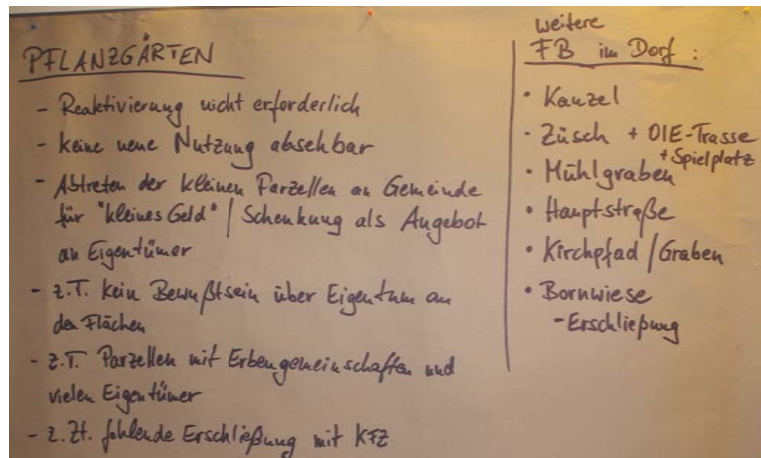 PFLANZGÄRTEN
- Reaktivierung nicht erforderlich
- keine neue Nutzung absehbar
- Abtreten der kleinen Parzellen an Gemeinde
für "kleines Geld" / Schenkung als Angebot
an Eigentümer
- z.T. kein Bewußtsein über Eigentum an
den Flächen
- z.T. Parzellen mit Erbengemeinschaften und
vielen Eigentümer
- z.Zt. fehlende Erschließung mit KFZ
weitere
FB im Dorf :
• Kanzel
• Züsch + DIE-Trasse
+ Spielplatz
• Mühlgraben
• Hauptstraße
• Kirchpfad / Graben
• Bornwiese
- Erschließung